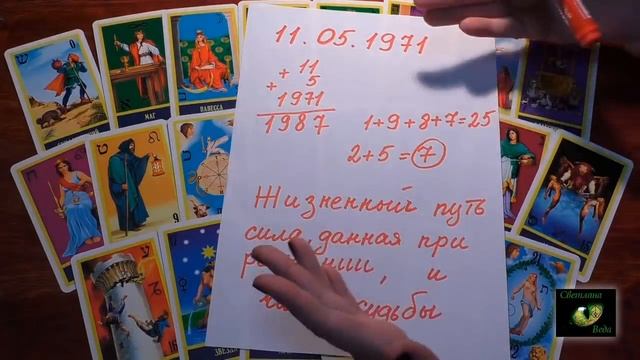 11.05.1971
+ 11
+ 5
1971
1987
1+9+8+7=25
2+5=7
Жизненный путь
сила, данная при
и
судьбы
МАГ
ПАПЕССА
Светлана
Веда